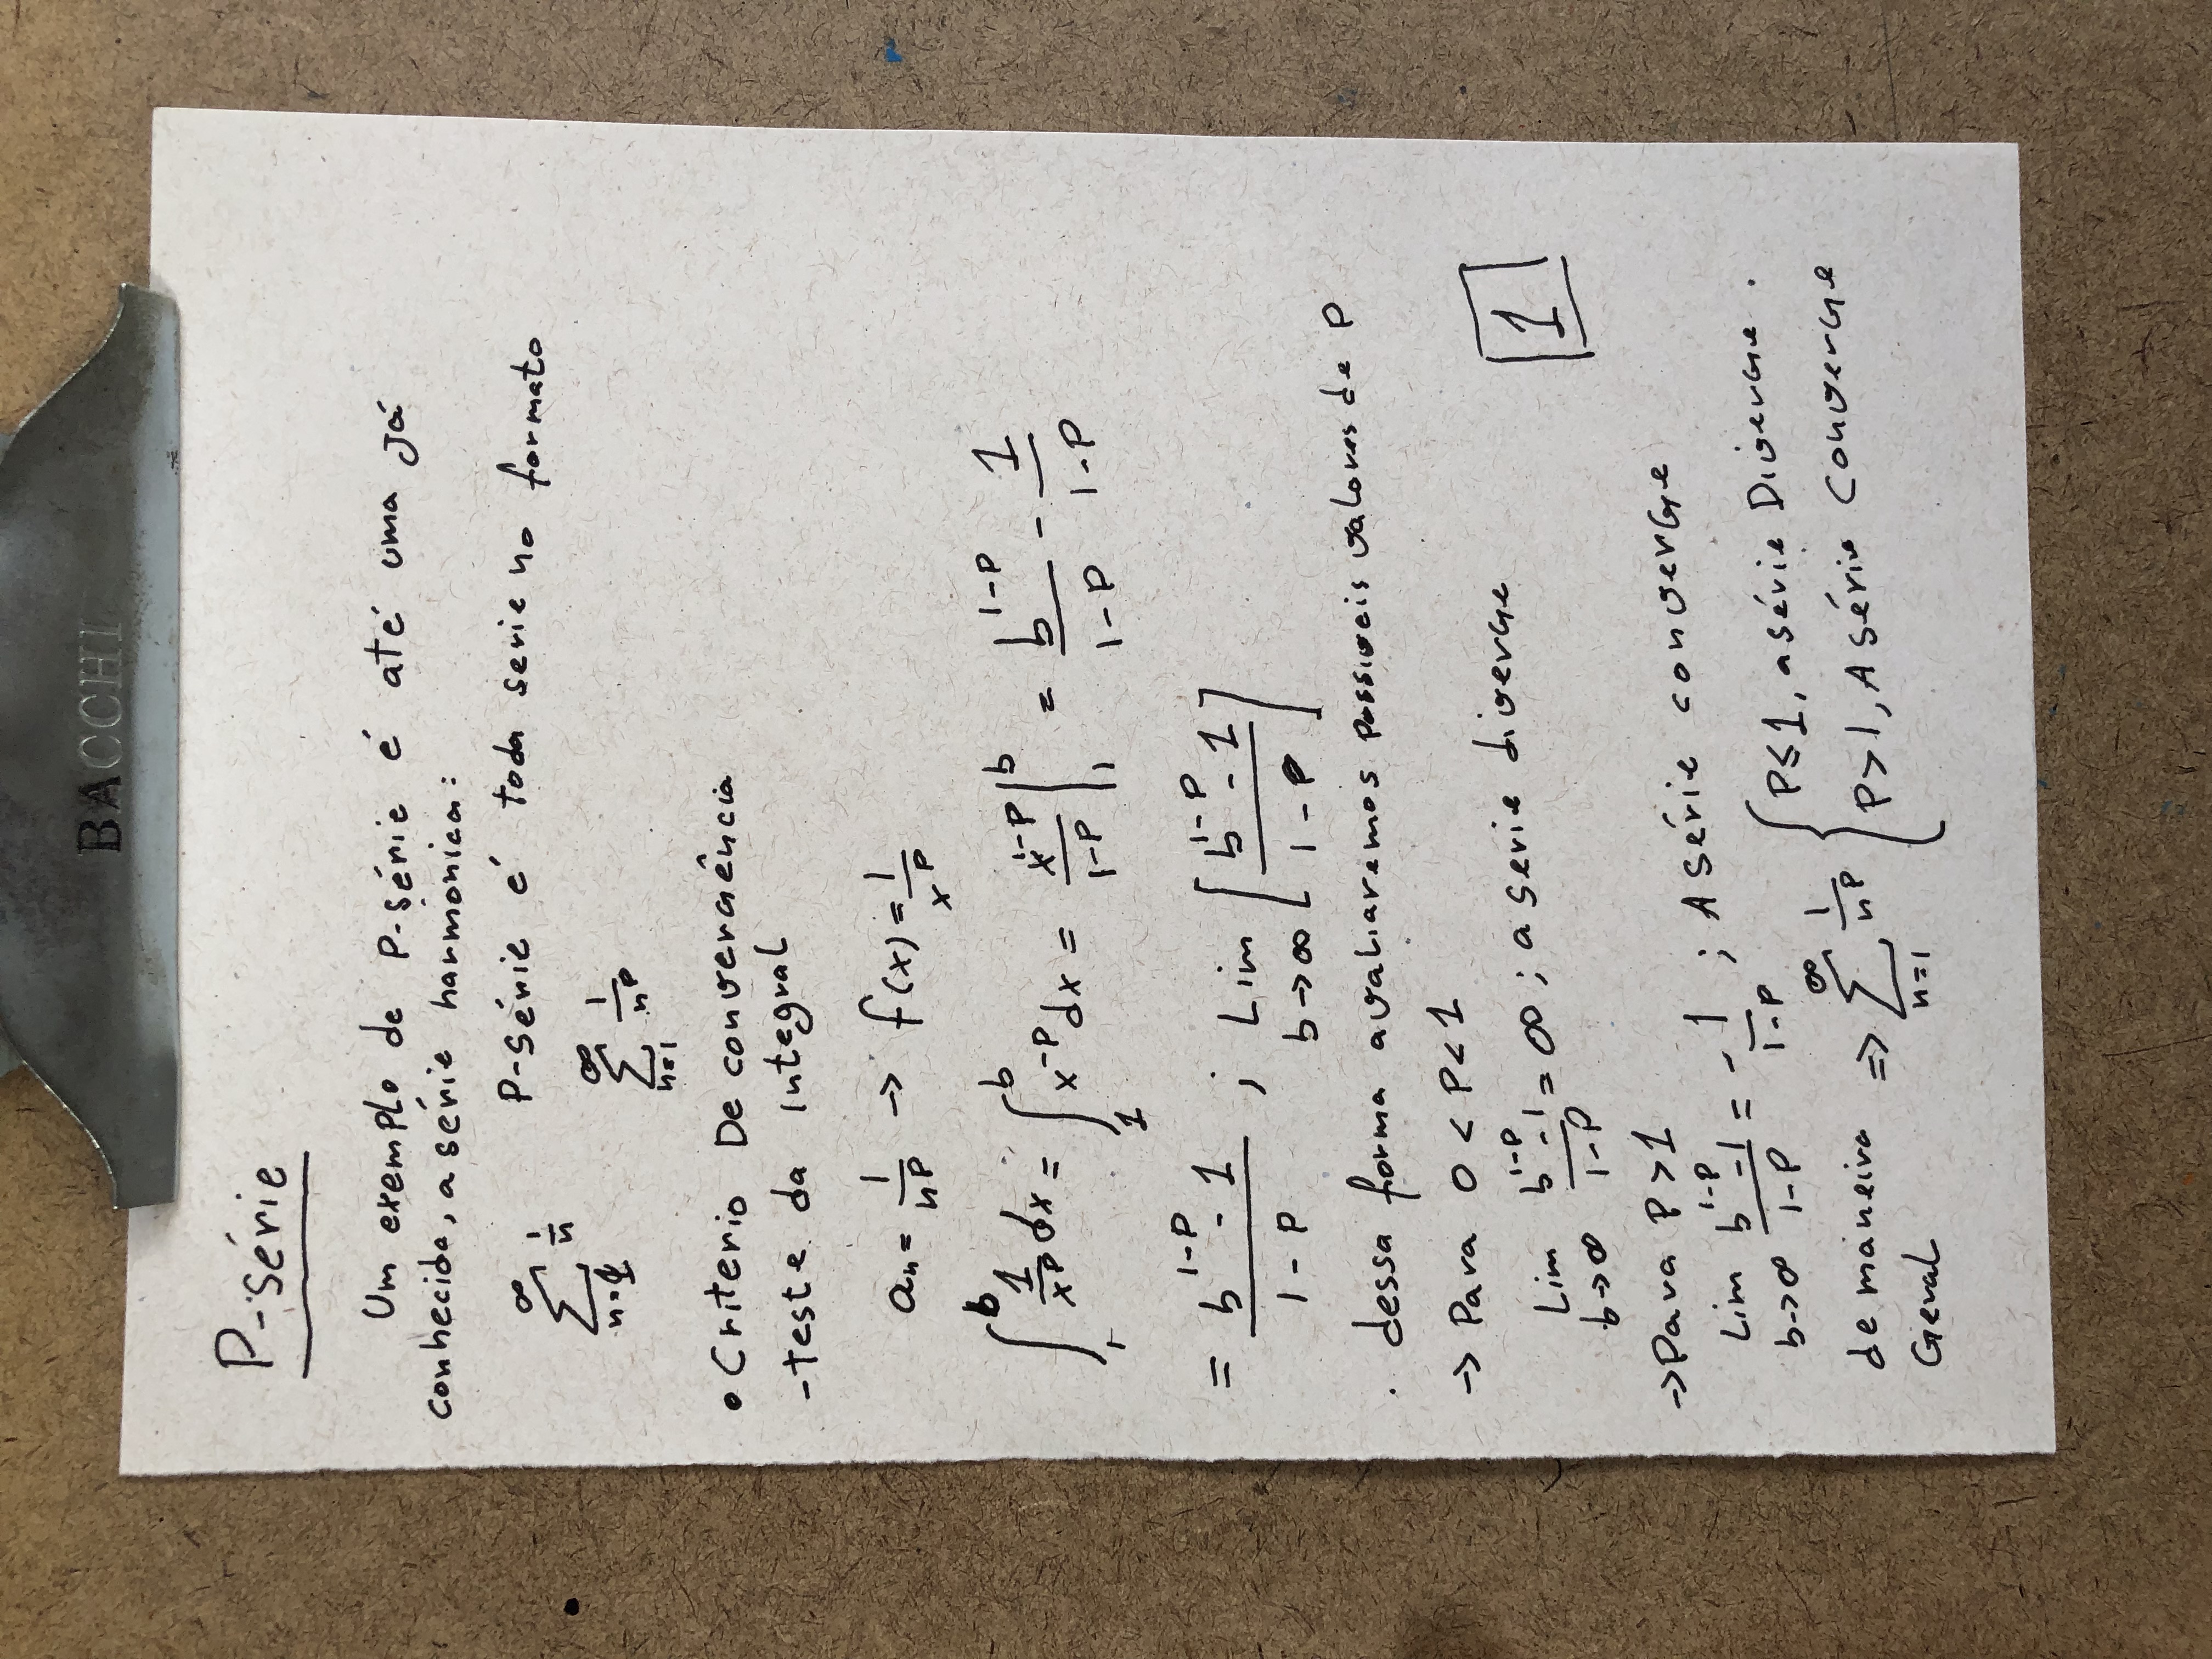 BACCHI
P-série
Um exemplo de P-série é até uma já
conhecida, a série harmônica:
P-série é toda serie no formato
∞ ∑ n=1 1/n
∞ ∑ n=1 1/n^p
• Criterio De convergência
- teste da Integral
aₙ = 1/n^p → f(x) = 1/x^p
∫₁^b 1/x^p dx = ∫₁^b x^-p dx = x^(1-p)/(1-p) |₁^b = b^(1-p)/(1-p) - 1/(1-p)
= (b^(1-p) - 1)/(1-p) ; Lim b→∞ [(b^(1-p) - 1)/(1-p)]
. dessa forma avaliaremos possiveis valores de P
→ Para 0 < P < 1
Lim b→∞ (b^(1-p) - 1)/(1-p) = ∞ ; a serie diverge
1
→ Para P > 1
Lim b→∞ (b^(1-p) - 1)/(1-p) = - 1/(1-p) ; A série converge
de maneira ⇒ ∞ ∑ n=1 1/n^p { P ≤ 1, a série Diverge.
Geral
P > 1, A série Converge